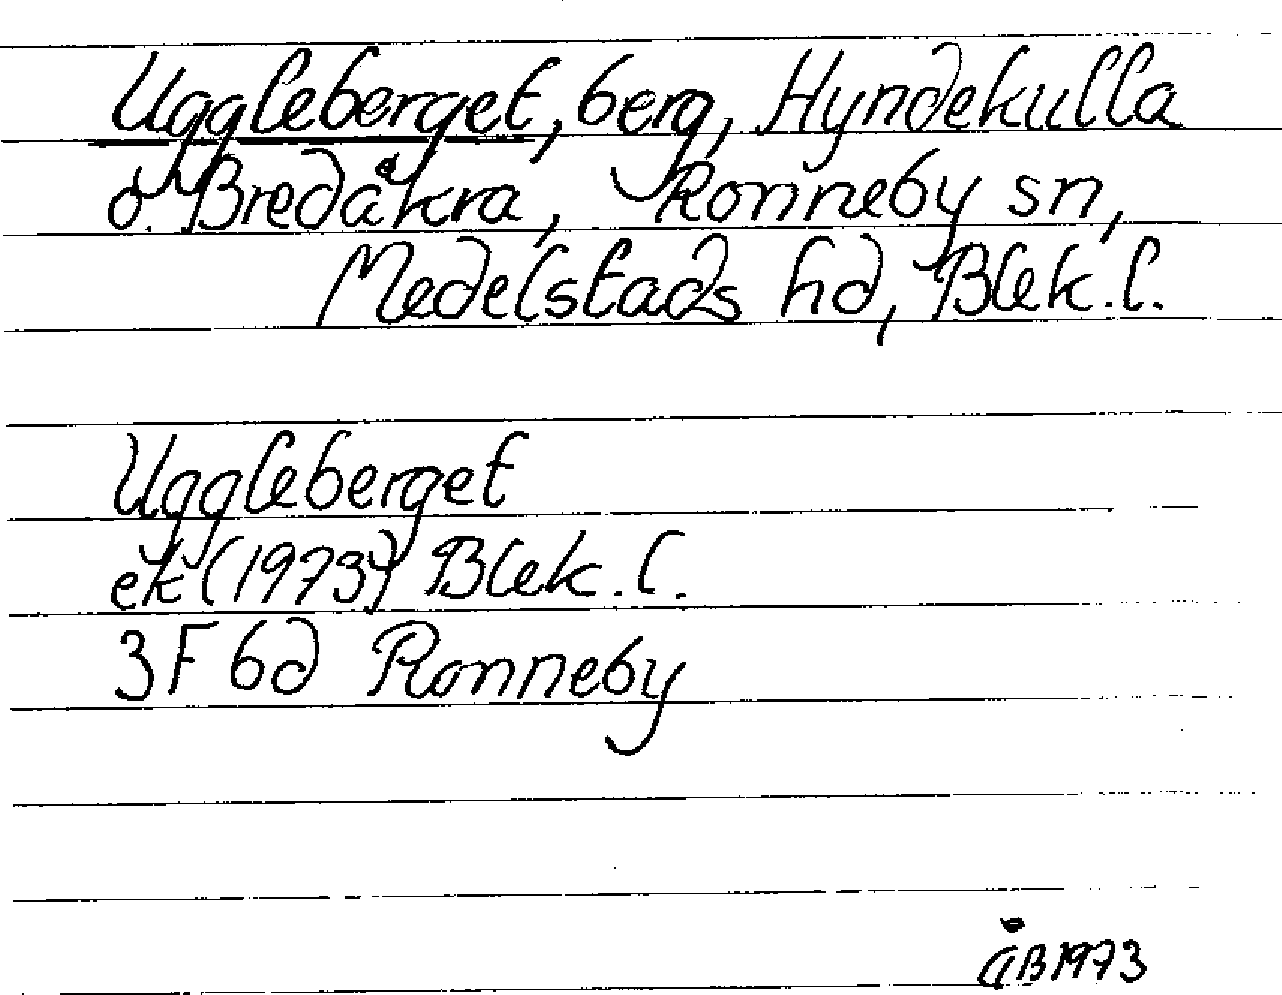 Uggleberget, berg, Hyndekulla
o. Bredåkra, Ronneby sn,
Medelstads hd, Blek. l.
Uggleberget
ek (1973) Blek. l.
3F 6d Ronneby
ÅB 1973